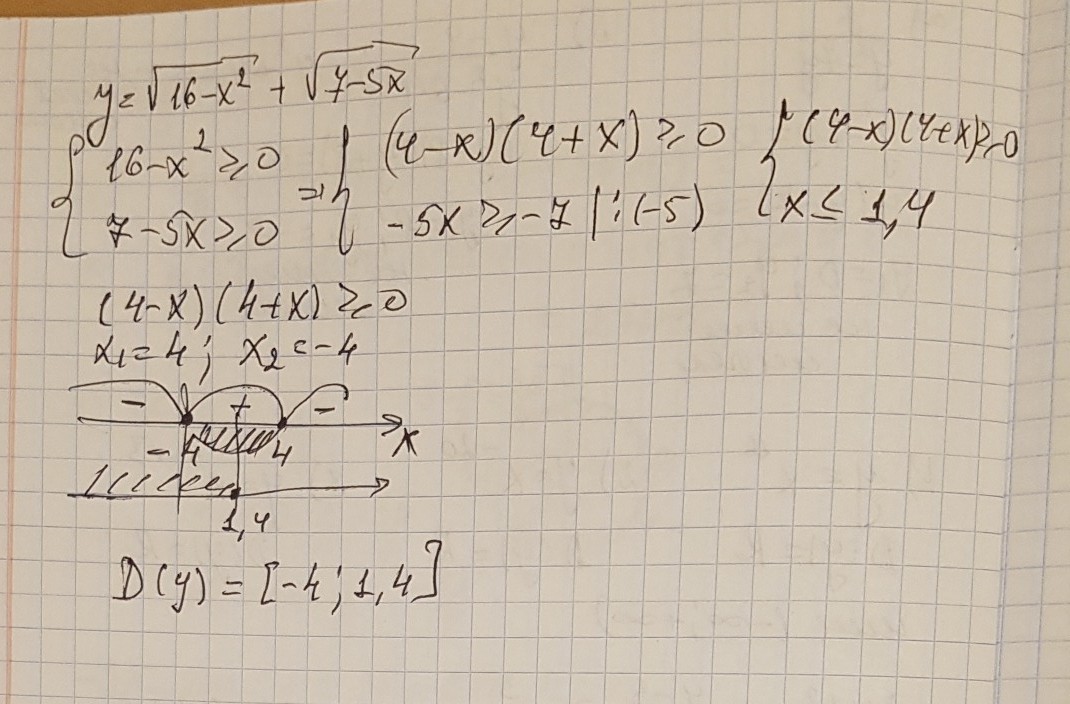 y=√16-x² + √7-5x
{ 16-x² ≥ 0 => { (4-x)(4+x) ≥ 0 { (4-x)(4+x) ≥ 0
7-5x ≥ 0 -5x ≥ -7 |:(-5) x ≤ 1,4
(4-x)(4+x) ≥ 0
x₁=4; x₂=-4
- + -
-4 4 x
1,4
D(y) = [-4; 1,4]